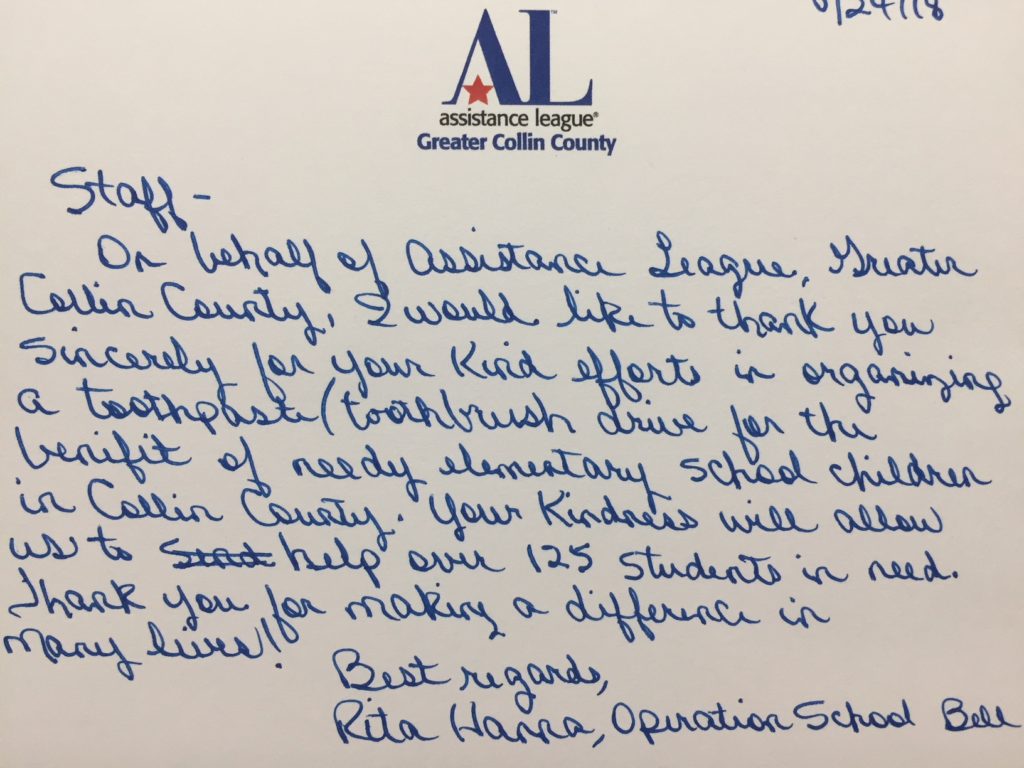 AL™
assistance league®
Greater Collin County
Staff -
On behalf of Assistance League, Greater
Collin County, I would like to thank you
sincerely for your kind efforts in organizing
a toothpaste/toothbrush drive for the
benifit of needy elementary school children
in Collin County. Your kindness will allow
us to help over 125 students in need.
Thank you for making a difference in
many lives!
Best regards,
Rita Hanna, Operation School Bell